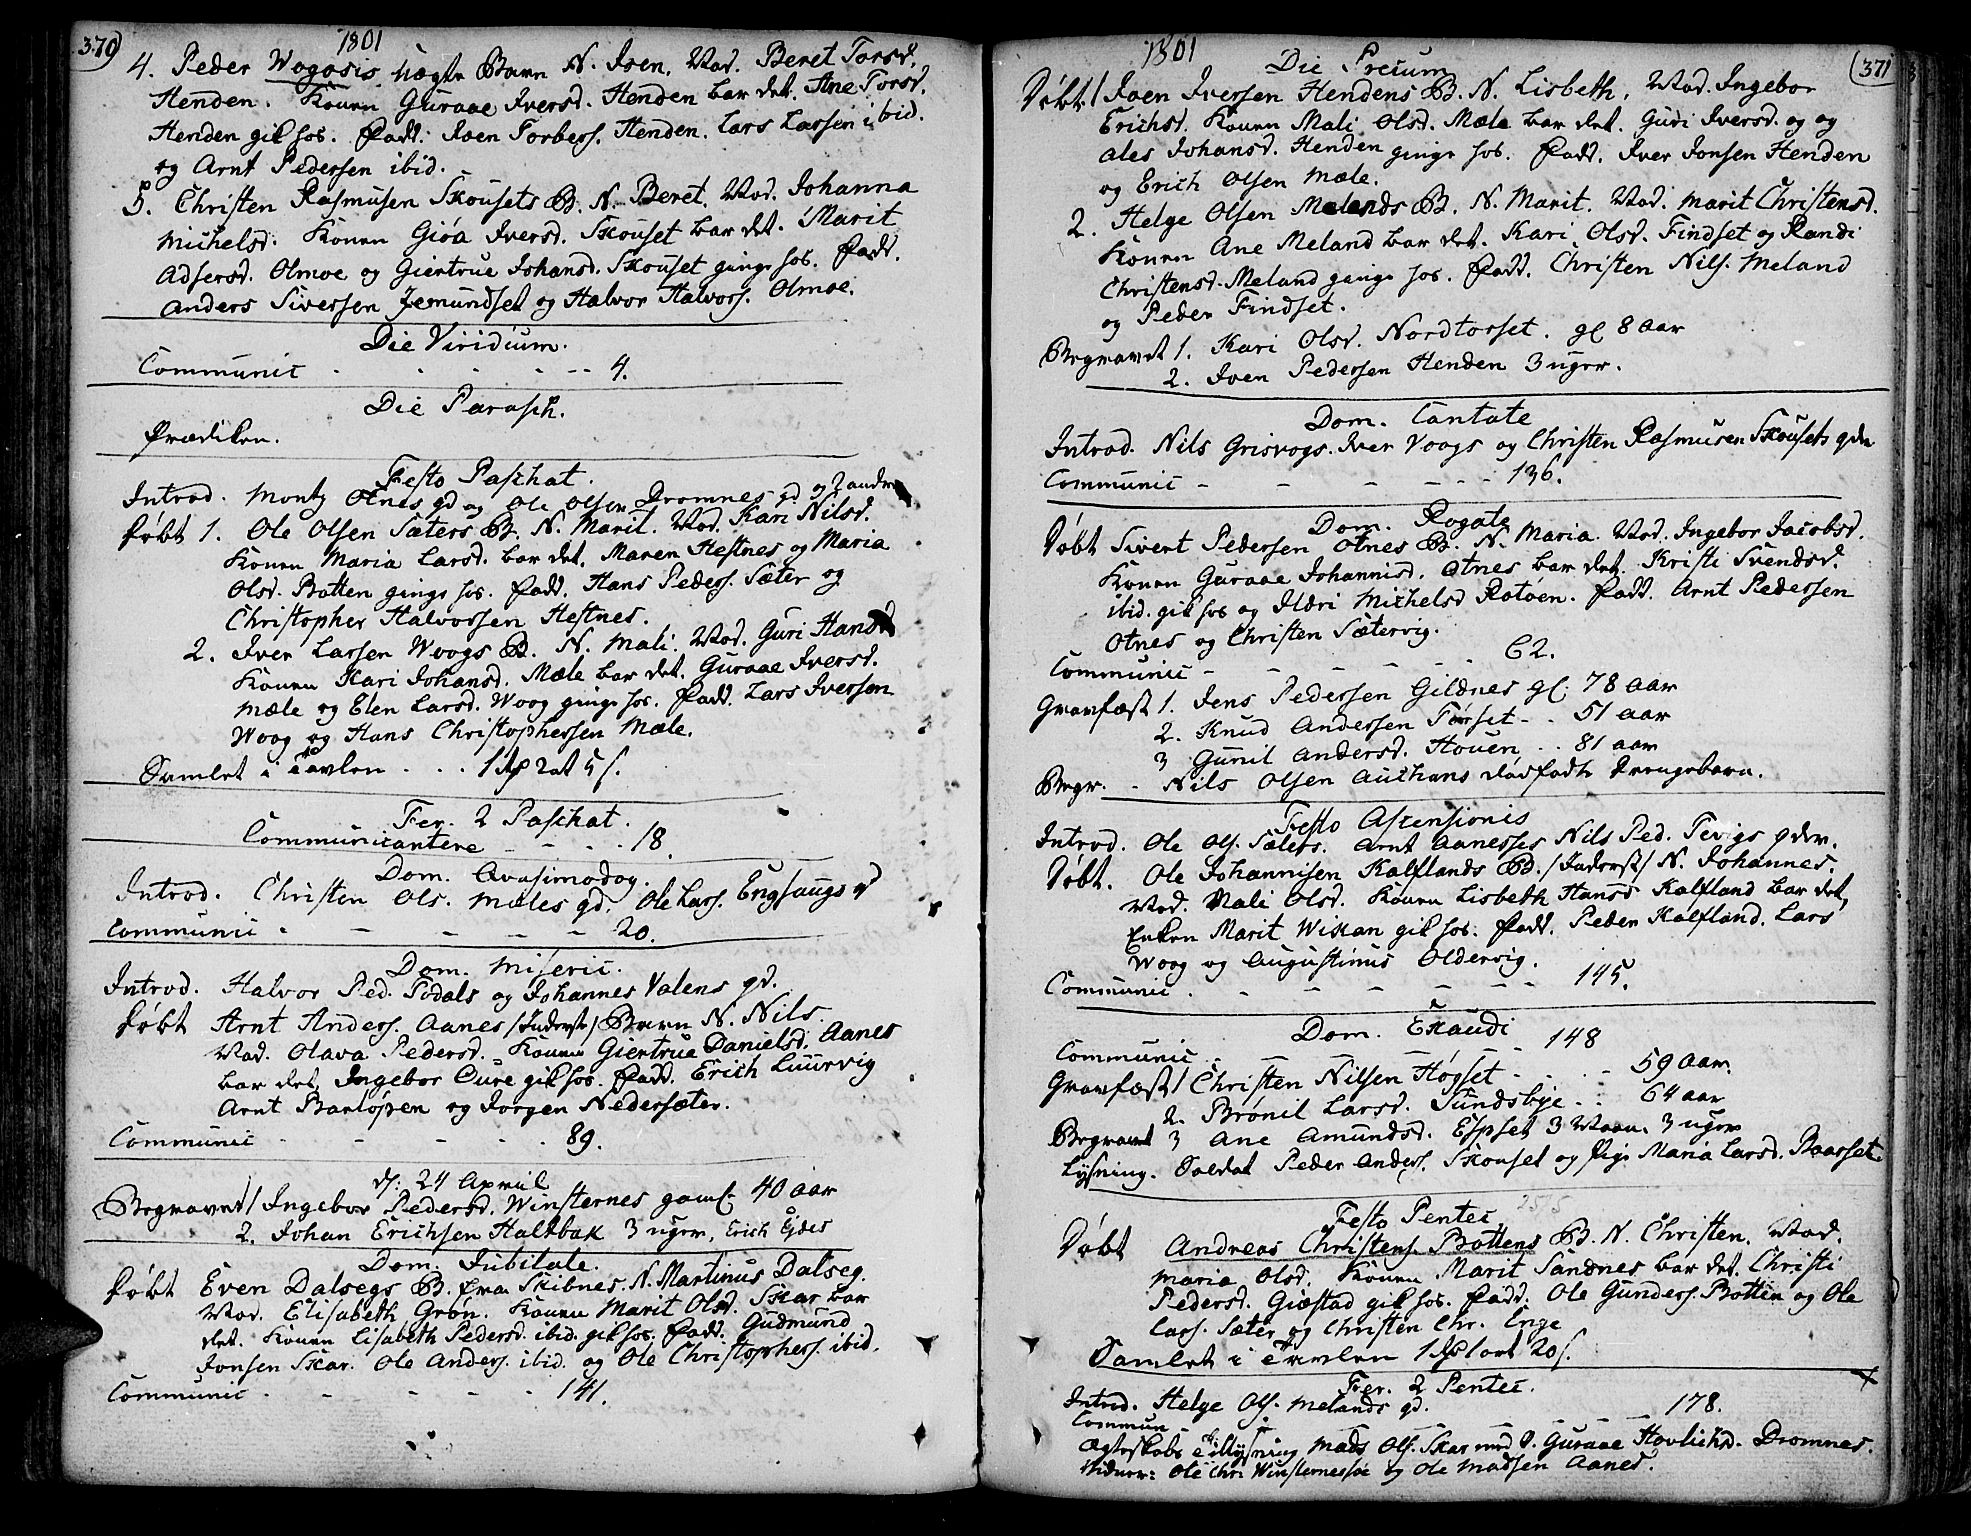 370
1801
4. Peder Wogosis Uægte Barn N. Joen. Mod. Beret Torsd.
Henden. Konen Guraae Iversd. Henden bar det. Ane Torsd.
Henden gik hos. Fadd: Joen Torbers. Henden. Lars Larsen ibid.
og Arnt Pedersen ibid.
5. Christen Rasmusen Skousets B. N. Beret. Mod. Johanna
Michelsd. Konen Gióa Iversd. Skouset bar det. Marit
Adsersd. Olmoe og Giertrue Johansd. Skouset ginge hos. Fadd.
Anders Siversen Jemundset og Halvor Halvors. Olmoe.
Die Viridium.
Communic - - - - 4.
Die Parasch.
Prædiken.
Festo Paschat.
Introd. Montz Otnes gd og Ole Olsen Dromnes gd og
Døbt 1. Ole Olsen Sæters B. N. Marit. Mod. Kari Nilsd.
Konen Maria Larsd. bar det. Maren Hestnes og Maria
Olsd. Botten ginge hos. Fadd. Hans Peders. Sæter og
Christopher Halvorsen Hestnes.
2. Iver Larsen Woogs B. N. Mali. Mod. Guri Hansd
Konen Kari Johansd. Mæle bar det. Guraae Iversd.
Mæle og Elen Larsd. Woog ginge hos. Fadd. Lars Iversen
Woog og Hans Christophersen Mæle.
Samlet i Tavlen . . . 1 2 ort 5 s.
Fer. 2 Paschat.
Communicantere - - - 18.
Dom. Qvasimodog.
Introd. Christen Ols. Mæles gd. Ole Lars. Engsaugs gd
Communic - - - - - 20.
Dom. Miseric.
Introd. Halvor Ped. Todals og Johannes Valens gd.
Døbt Arnt Anders. Aanes /Inderst/ Barn N. Nils.
Mod. Olava Pedersd. Konen Giertrue Danielsd. Aanes
bar det, Ingebor Cure gik hos. Fadd. Erich Luurvig
Arnt Barløpen og Jorgen Nedersæter.
Communic - - - - - 89.
d: 24 April
Begravet 1 Ingebor Pedersd. Winsternes gaml. 40 aar
2. Johan Erichsen Haltbak 3 uger, Erich Eydes
Dom. Jubilate.
Døbt Even Dalsegs B. fra Skibnes. N. Martinus Dalseg.
Mod. Elisabeth Grøn. Konen Marit Olsd. Skar bar
det. Konen Lisabeth Pedersd. ibid. gik hos. Fadd. Gudmund
Jonsen Skar. Ole Anders. ibid. og Ole Christophers. ibid.
Communic - - - - - 141.
1801
371
Die Precum
Døbt 1 Joen Iversen Hendens B. N. Lisbeth. Mod. Ingebor
Erichsd. Konen Mali Olsd. Mæle bar det. Guri Iversd. og og
Ales Johansd. Henden ginge hos. Fadd. Iver Jonsen Henden
og Erich Olsen Mæle.
2. Helge Olsen Melands B. N. Marit. Mod. Marit Christensd.
Konen Ane Meland bar det. Kari Olsd. Findset og Randi
Christensd. Meland ginge hos. Fadd. Christen Nils. Meland
og Peder Findset.
Begravet 1. Kari Olsd. Nordtorset. gl 8 aar
2. Iven Pedersen Henden 3 uger.
Dom. Cantate
Introd. Nils Grisvogs. Iver Voogs og Christen Rasmusen Skousets qdr
Communic - - - - - 136.
Dom. Rogate
Døbt Sivert Pedersen Otnes B. N. Maria. Mod. Ingebor Jacobsd.
Konen Guraae Johannisd. Otnes bar det. Kristi Svendsd.
ibid. gik hos og Ildri Michelsd Rotøen. Fadd. Arnt Pedersen
Otnes og Christen Sætervig.
Communic - - - - - 62.
Gravfæst 1. Jens Pedersen Gildnes gl. 78 aar
2. Knud Andersen Torset - - 51 aar
3 Gunil Andersd. Houen - - 81 aar
Begr. - Nils Olsen Authans dødfødte Drengebarn.
Festo Ascensionis
Introd. Ole Ols. Sæters. Arnt Aaneses Nils Ped. Tevigs qdr.
Døbt. Ole Johannisen Kalflands B. /Inderst/ N. Johannes.
Mod. Mali Olsd. Konen Lisbeth Hansd Kalfland bar det,
Enken Marit Wikan gik hos. Fadd. Peder Kalfland. Lars
Woog og Augustinus Oldervig.
Communic - - - - - 145.
Dom. Exaudi
Communic - - - - - 148
Gravfæst 1 Christen Nilsen Høgset - - - 59 aar.
2. Brønil Larsd. Sundsbye - - 64 aar
Begravet 3 Ane Amundsd. Espset 3 Maan. 3 uger
Lysning. Soldat Peder Anders. Skouset og Pige Maria Larsd. Raasset.
2575
Festo Pentec
Døbt Andreas Christens. Bottens B. N. Christen. Mod.
Maria Olsd. Konen Marit Sandnes bar det. Christi
Pedersd. Giøstad gik hos. Fadd. Ole Gunders. Botten og Ole
Lars. Sæter og Christen Chr. Enge
Samlet i Tavlen 1 1 ort 20 s.
Fer. 2 Pentec.
Introd. Helge Ols. Melands gd.
Commun - - - - - 178.
Ægteskabs Tillysning Mads Ols. Skar med P. Guraae Hovlichd. Dromnes.
Vidner: Ole Chr. Winsternessøe og Ole Madsen Aanes.